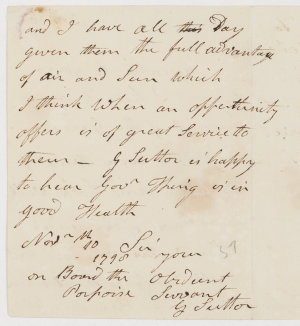 and I have all this Day
given them the full advantage
of air and Sun which
I think when an oppertunity
offers is of great Service to
them — G Suttor is happy
to hear Govr King is in
good Health
Novr 10th Sir
1798 your
on Board the Obedient
Porpoise Servant
G Suttor